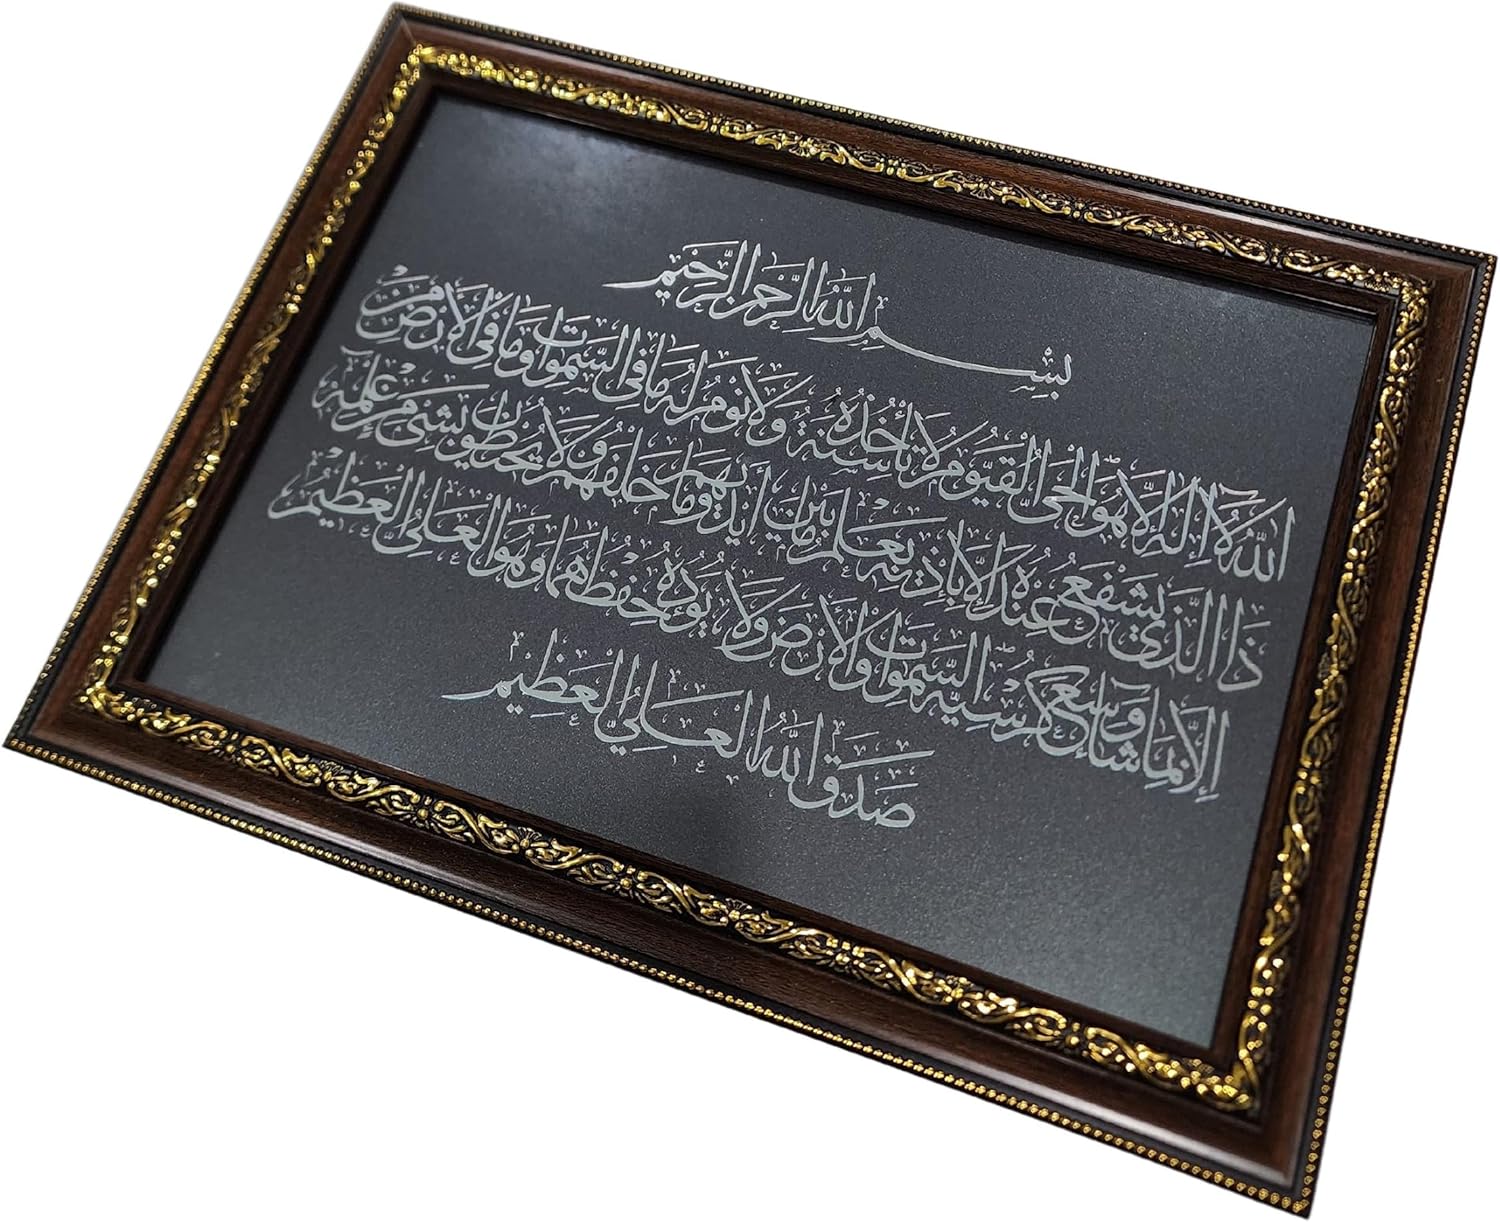 بِسْمِ اللَّهِ الرَّحْمَنِ الرَّحِيمِ
اللَّهُ لَا إِلَهَ إِلَّا هُوَ الْحَيُّ الْقَيُّومُ لَا تَأْخُذُهُ سِنَةٌ وَلَا نَوْمٌ لَهُ مَا فِي السَّمَوَاتِ وَمَا فِي الْأَرْضِ مَنْ
ذَا الَّذِي يَشْفَعُ عِنْدَهُ إِلَّا بِإِذْنِهِ يَعْلَمُ مَا بَيْنَ أَيْدِيهِمْ وَمَا خَلْفَهُمْ وَلَا يُحِيطُونَ بِشَيْءٍ مِنْ عِلْمِهِ
إِلَّا بِمَا شَاءَ وَسِعَ كُرْسِيُّهُ السَّمَوَاتِ وَالْأَرْضَ وَلَا يَؤُدُهُ حِفْظُهُمَا وَهُوَ الْعَلِيُّ الْعَظِيمُ
صَدَقَ اللَّهُ الْعَلِيُّ الْعَظِيمُ